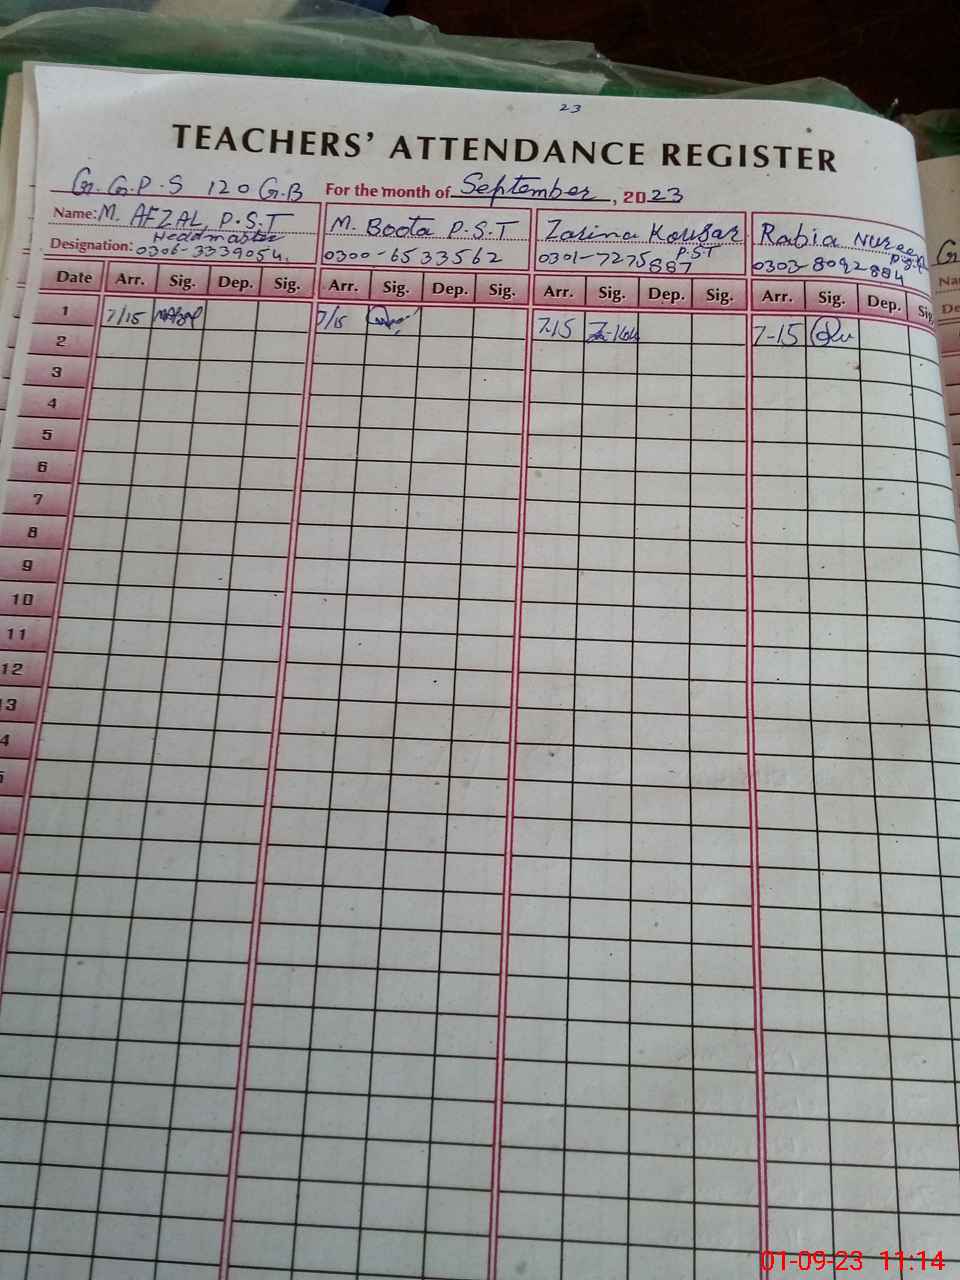 23
TEACHERS' ATTENDANCE REGISTER
G.G.P.S 120 G.B For the month of September, 2023
Name: M. AFZAL P.S.T M. Boota P.S.T Zarina Kousar Rabia
Headmaster P.S.T
Designation: 0306-3339054. 0300-6533562 0301-7275887 0303-8092884
Date Arr. Sig. Dep. Sig. Arr. Sig. Dep. Sig. Arr. Sig. Dep. Sig. Arr. Sig. Dep. Sig.
1 7/15 7/15 7.15 7-15
2
3
4
5
6
7
8
9
10
11
12
13
4
01-09-23 11:14